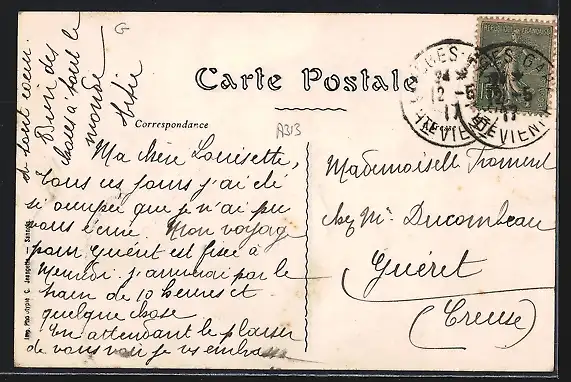 Carte Postale
Correspondance
A313
G
Ma chère Louisette,
tous ces jours j'ai été
si occupée que je n'ai pu
vous écrire. Mon voyage
pour Guéret est fixé à
j'arriverai par le
train de 10 heures et
quelque chose
En attendant le plaisir
de vous voir je vs embrasse
de tout cœur.
Bien des
choses à tout le
monde
Mademoiselle
chez Mr Ducombeau
Guéret
(Creuse)
Imp. Phototypie C. Jeangette. —
LIMOGES-GARE
12 -5
17
HTE VIENNE